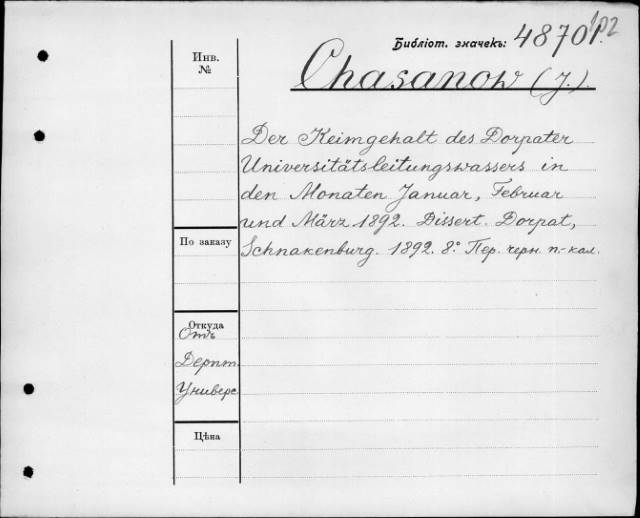 Библіот. значекъ: 48701.
Инв.
№
Chasanow (J.).
Der Keimgehalt des Dorpater
Universitätsleitungswassers in
den Monaten Januar, Februar
und März 1892. Dissert. Dorpat,
Schnakenburg. 1892. 8.° Пер. черн. п.-кал.
По заказу
Откуда
Отъ
Дерпт.
Универс
Цѣна